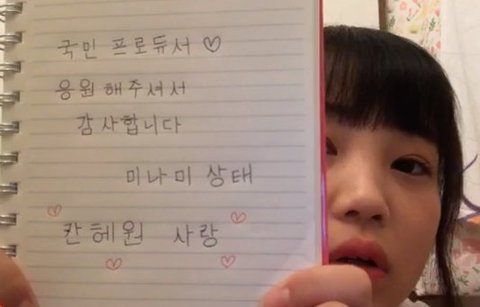 국민 프로듀서 ♡
응원해주셔서
감사합니다
미나미 상태
칸혜원 사랑